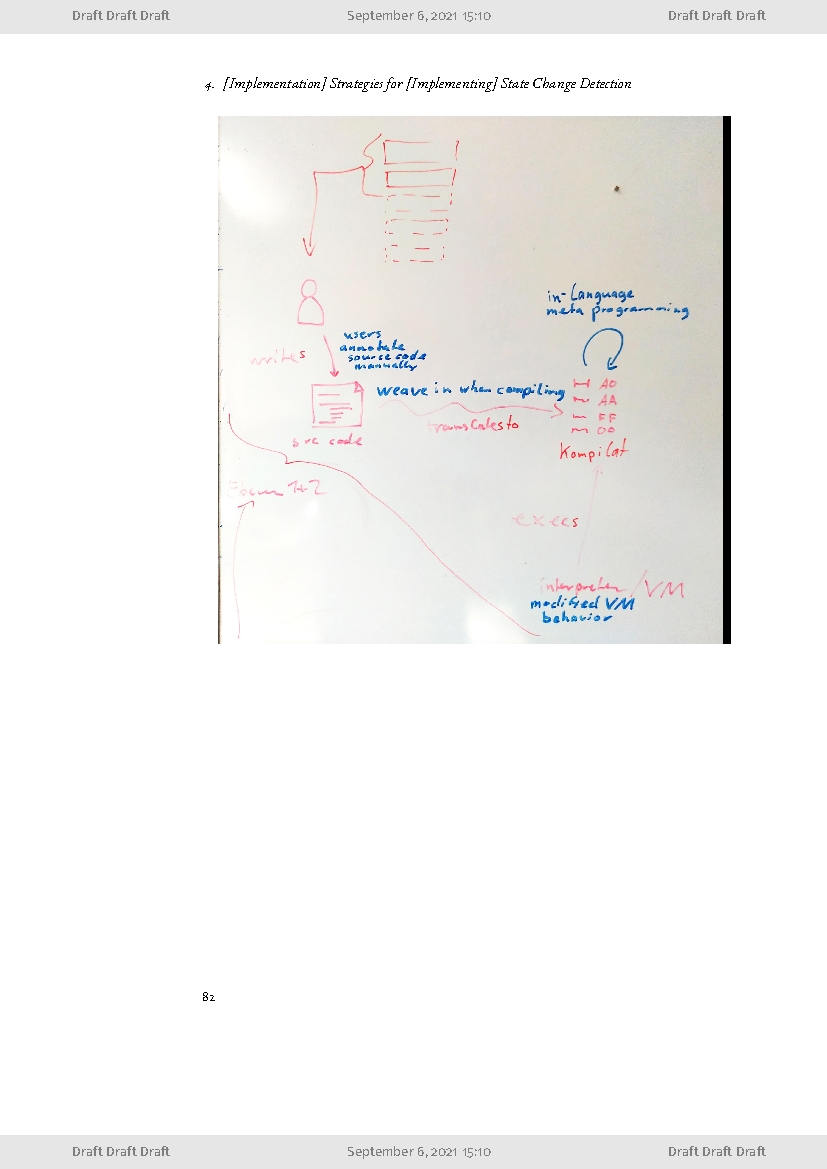 Draft Draft Draft September 6, 2021 15:10 Draft Draft Draft
4. [Implementation] Strategies for [Implementing] State Change Detection
in-language
meta programming
users
annotate
source code
manually
writes
weave in when compiling
AO
AA
FF
00
translates to
src code
Kompilat
Ebenen 1+2
execs
interpreter/VM
modified VM
behavior
82
Draft Draft Draft September 6, 2021 15:10 Draft Draft Draft